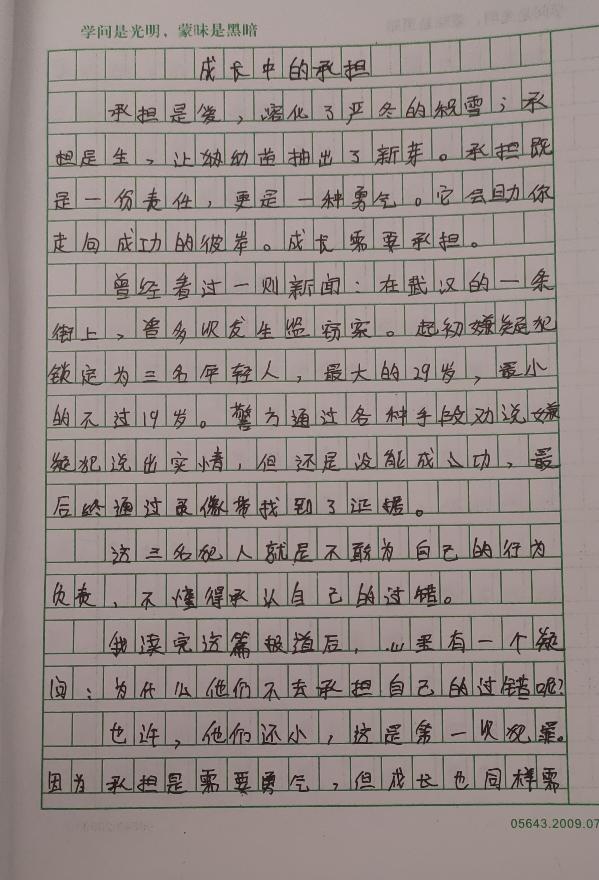 学问是光明，蒙昧是黑暗
成长中的承担
承担是爱，溶化了严冬的积雪；承
担是生，让幼幼苗抽出了新芽。承担既
是一份责任，更是一种勇气。它会助你
走向成功的彼岸。成长需要承担。
曾经看过一则新闻：在武汉的一条
街上，曾多次发生盗窃案。起初嫌疑犯
锁定为三名年轻人，最大的29岁，最小
的不过19岁。警方通过各种手段劝说嫌
疑犯说出实情，但还是没能成功，最
后终通过录像带找到了证据。
这三名犯人就是不敢为自己的行为
负责，不懂得承认自己的过错。
我读完这篇报道后，心里有一个疑
问：为什么他们不去承担自己的过错呢？
也许，他们还小，这是第一次犯罪。
因为承担是需要勇气，但成长也同样需
05643.2009.07